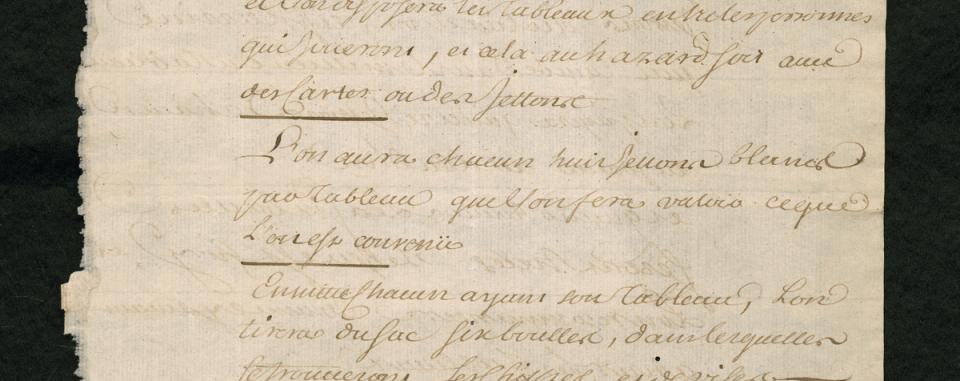 et l'on disposera les Tableaux entre les personnes
qui Joueront, et cela au hazard soit avec
des Cartes ou des Jettons
L'on aura chacun huit Jettons blancs
par Tableau que l'on fera valoir ce que
l'on est convenü
Ensuitte Chacun ayant son Tableau, L'on
tirera du sac six boulles, dans lesquelles
se trouveront les chiffres et devises